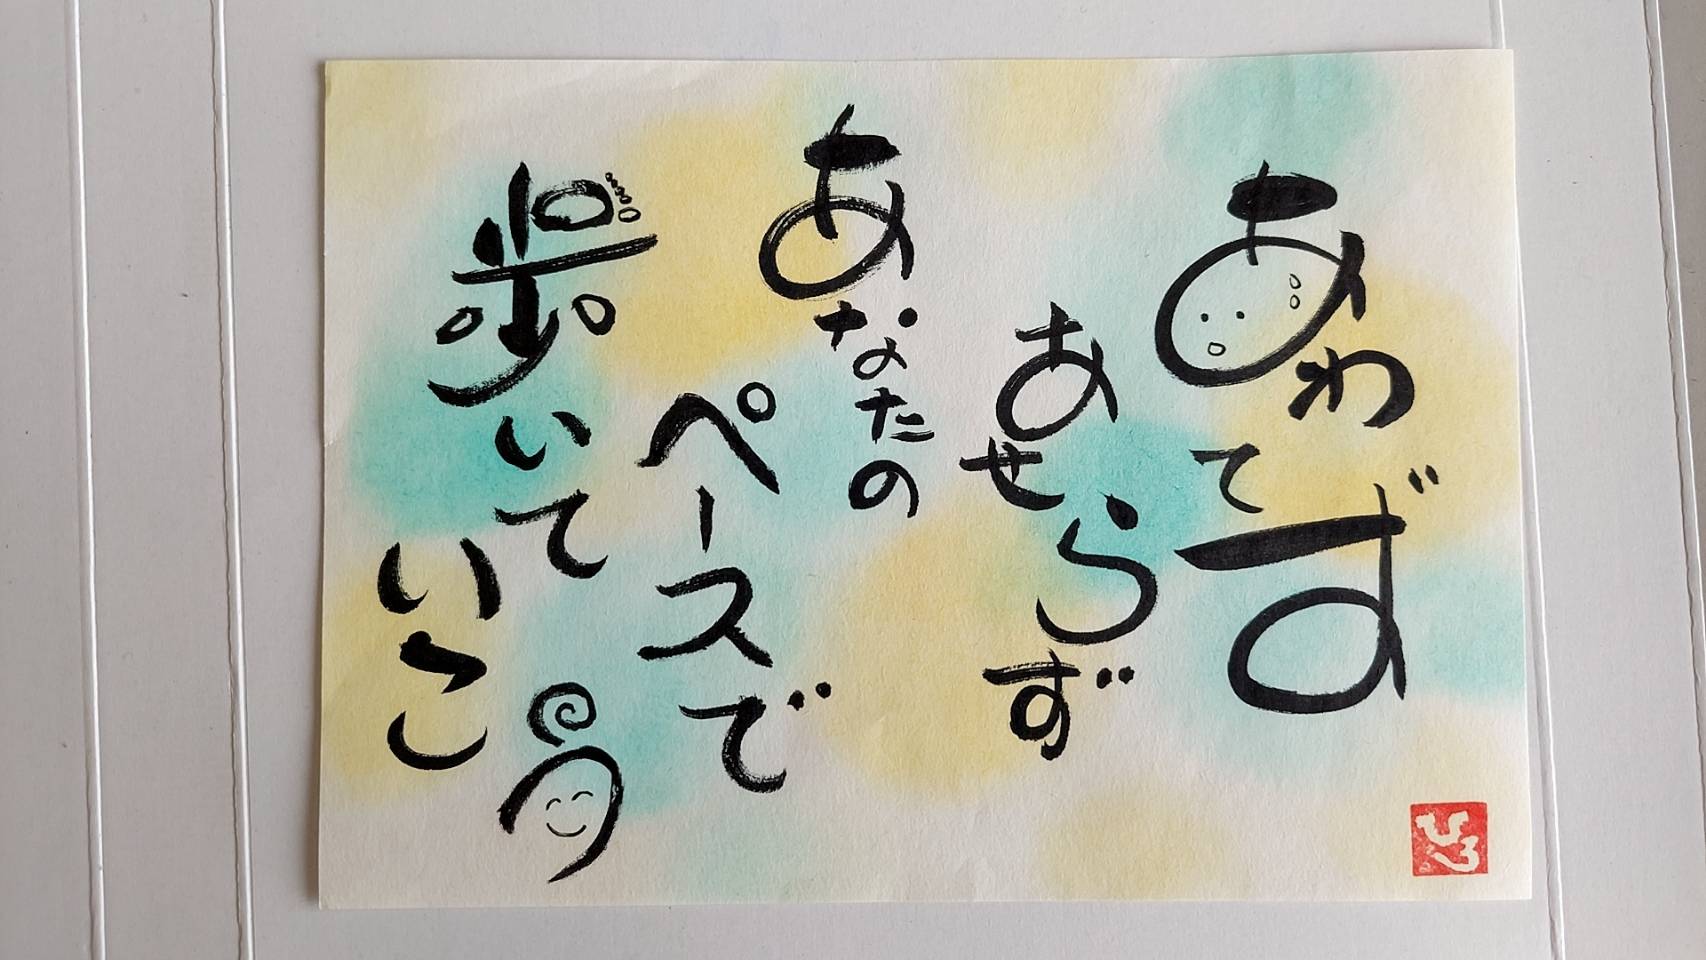 あわてず
あせらず
あなたの
ペースで
歩いて
いこう